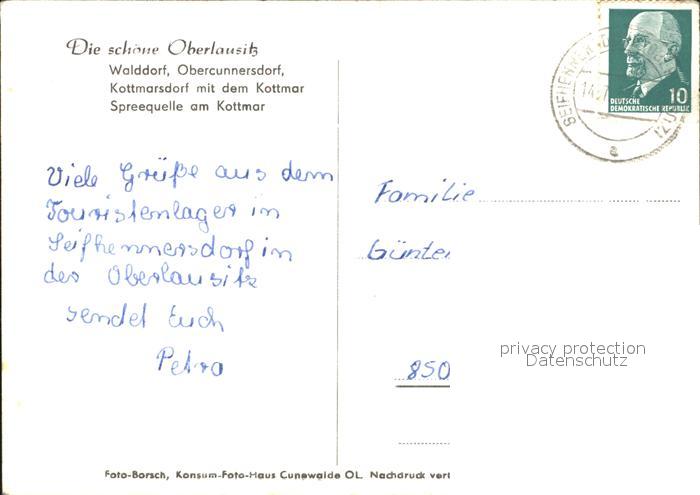 Die schöne Oberlausitz
Walddorf, Obercunnersdorf,
Kottmarsdorf mit dem Kottmar
Spreequelle am Kottmar
Viele Grüße aus dem
Touristenlager in
Seifhennersdorf in
der Oberlausitz
sendet Euch
Petra
10
DEUTSCHE
DEMOKRATISCHE REPUBLIK
a
Familie
Günter
850
privacy protection
Datenschutz
Foto-Borsch, Konsum-Foto-Haus Cunewalde OL. Nachdruck verl